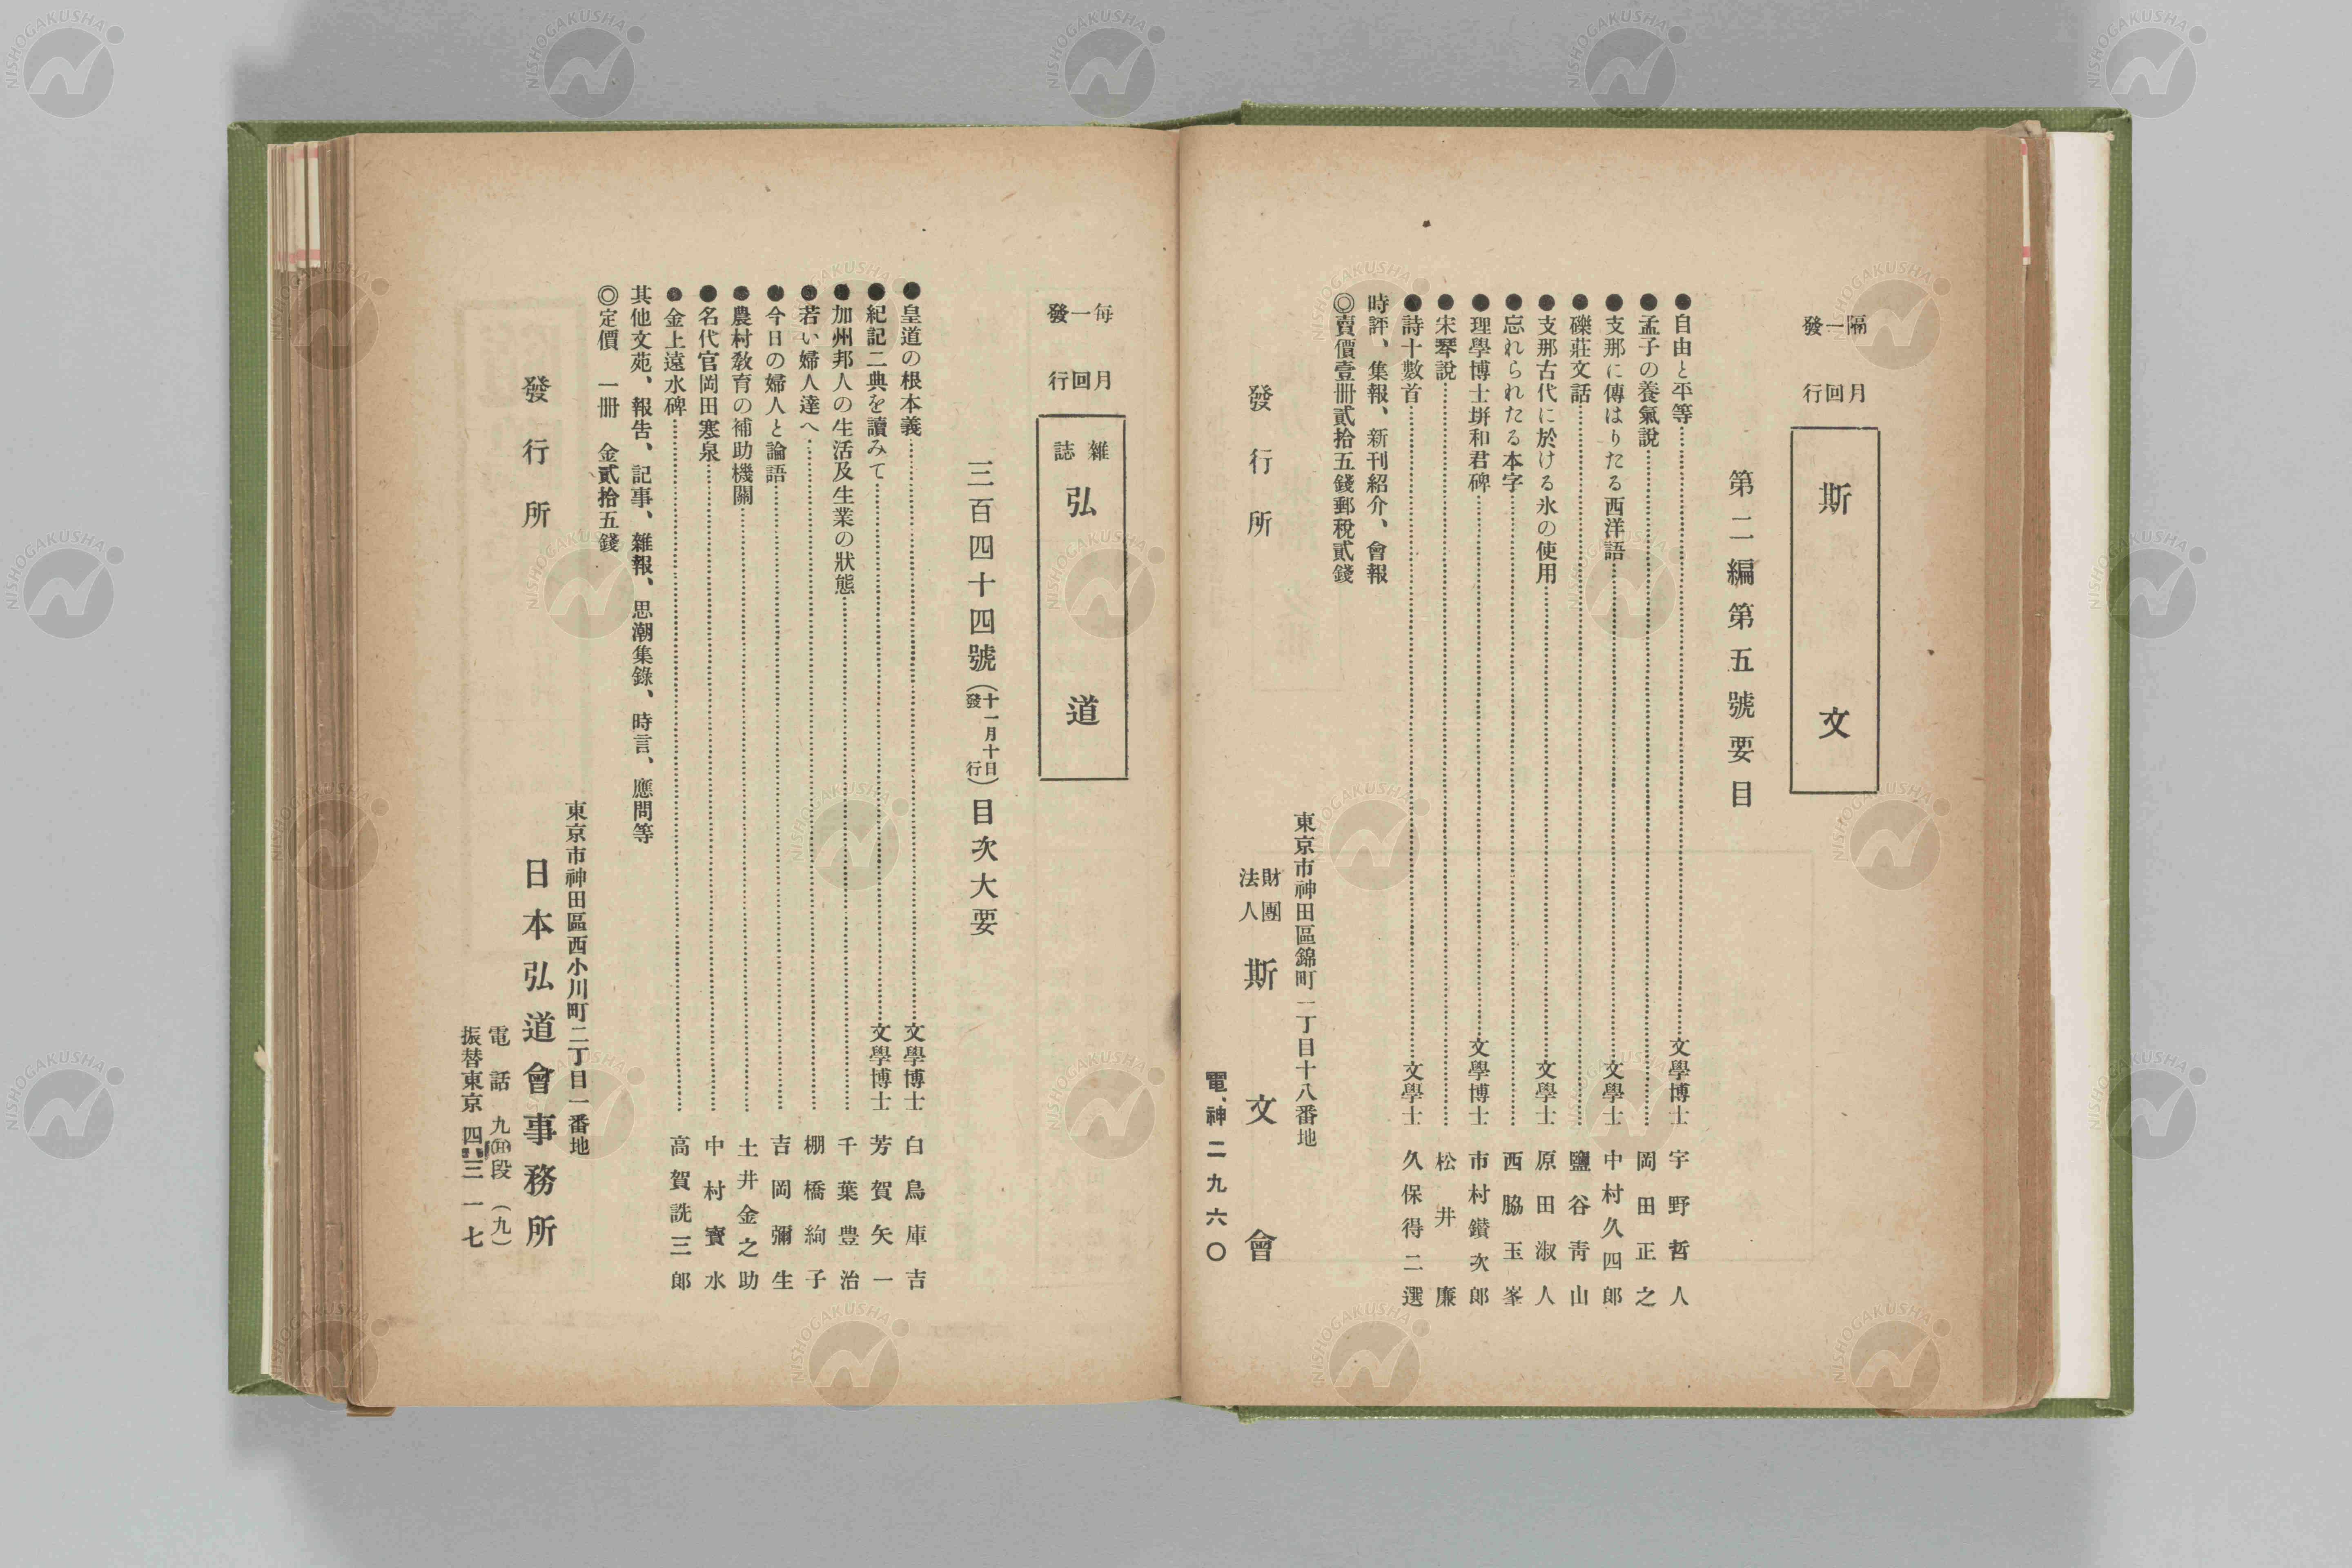 隔月
一回
發行
斯文
第二編第五號要目
●自由と平等…文學博士 宇野哲人
●孟子の養氣說…岡田正之
●支那に傳はりたる西洋語…文學士 中村久四郎
●礫莊文話…鹽谷靑山
●支那古代に於ける氷の使用…文學士 原田淑人
●忘れられたる本字…西脇玉峯
●理學博士垪和君碑…文學博士 市村鑽次郎
●宋琴說…松井廉
●詩十數首…文學士 久保得二選
時評、集報、新刊紹介、會報
◎賣價壹冊貳拾五錢郵稅貳錢
東京市神田區錦町一丁目十八番地
發行所 財團法人 斯文會
電、神二九六〇
每月
一回
發行
雜誌 弘道
三百四十四號(十一月十日發行)目次大要
●皇道の根本義…文學博士 白鳥庫吉
●紀記二典を讀みて…文學博士 芳賀矢一
●加州邦人の生活及生業の狀態…千葉豊治
●若い婦人達へ…棚橋絢子
●今日の婦人と論語…吉岡彌生
●農村敎育の補助機關…土井金之助
●名代官岡田寒泉…中村寶水
●金上遠水碑…高賀詵三郎
其他文苑、報告、記事、雜報、思潮集錄、時言、應問等
◎定價 一冊 金貳拾五錢
東京市神田區西小川町二丁目一番地
發行所 日本弘道會事務所
電話 九段(九)
振替東京四三一七
NISHOGAKUSHA